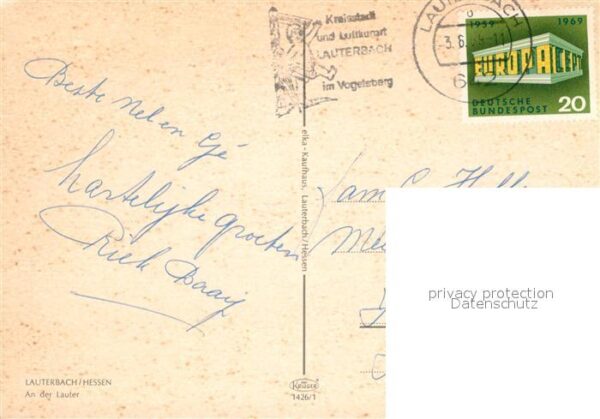 Kreisstadt
und Luftkurort
LAUTERBACH
im Vogelsberg
LAUTERBACH
3.6.69-11
1959 1969
EUROPA CEPT
DEUTSCHE
BUNDESPOST 20
Beste Nel en Gé
hartelijke groeten
Riek Baaij
elka-Kaufhaus, Lauterbach/Hessen
Fam.
privacy protection
Datenschutz
LAUTERBACH/HESSEN
An der Lauter
Krüger
1426/1